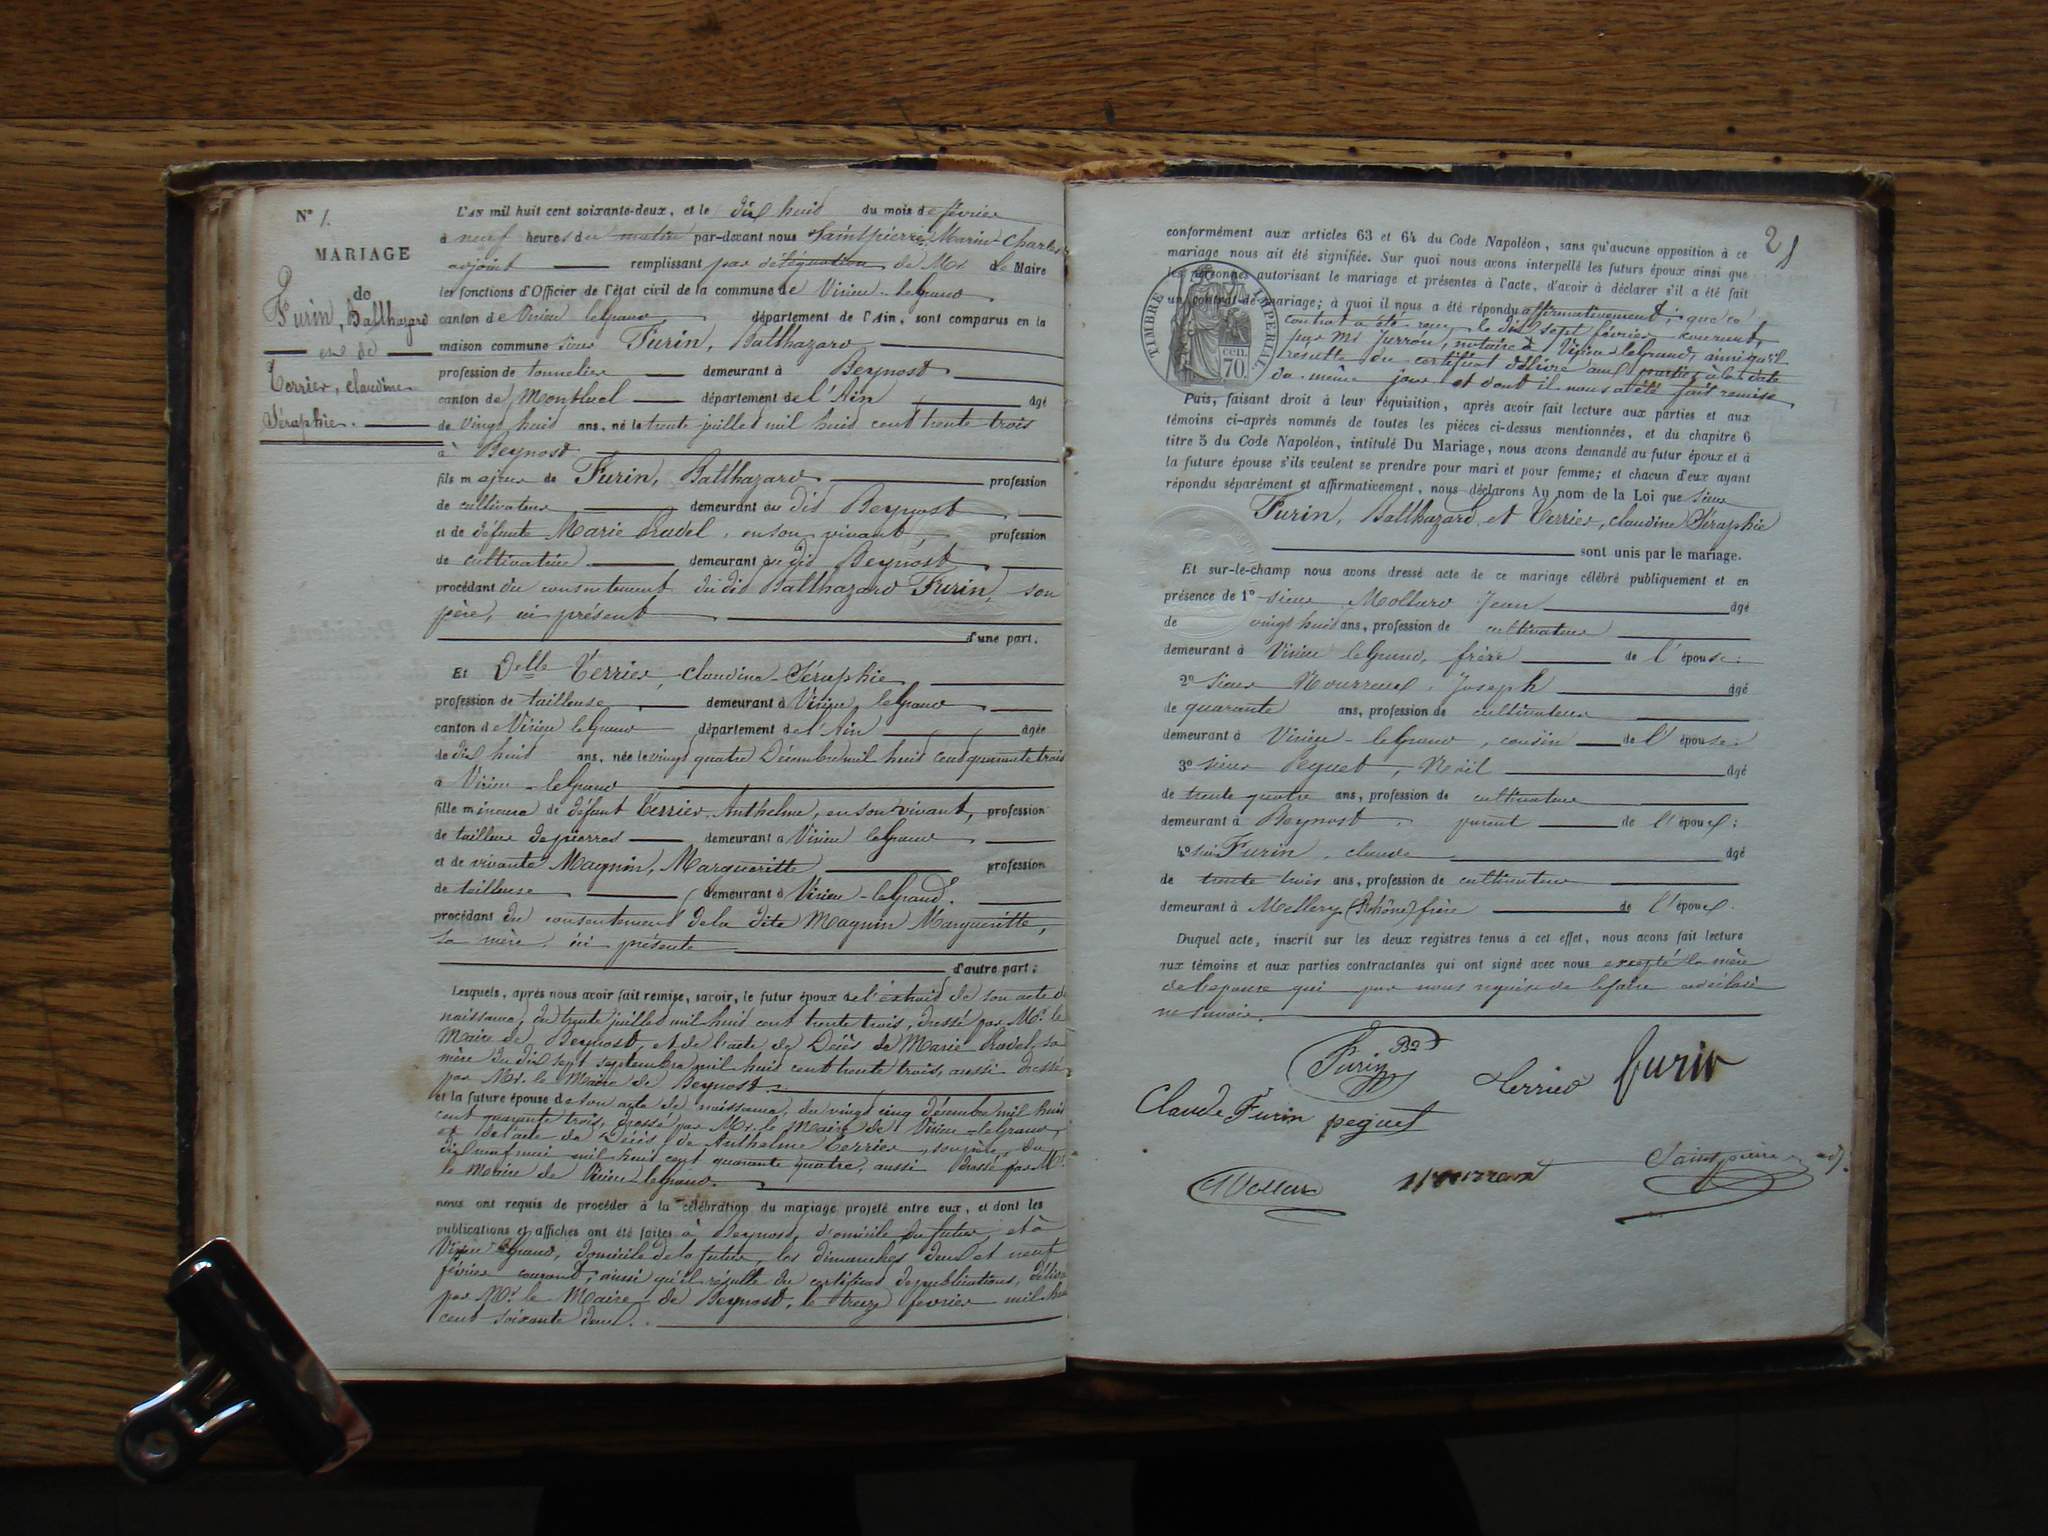 N° 1.
MARIAGE
de
Furin, Balthazard
et de
Terrier, claudine
Séraphie.
L'AN mil huit cent soixante-deux, et le dix huit du mois de février
à neuf heures du matin par-devant nous Saintpierre, Marin-Charles
adjoint remplissant par délégation de Mr le Maire
les fonctions d'Officier de l'état civil de la commune de Virieu-legrand
canton de Virieu legrand, département de l'Ain, sont comparus en la
maison commune sieur Furin, Balthazard
profession de tonnelier demeurant à Beynost
canton de Montluel département de l'Ain, âgé
de vingt huit ans, né le trente juillet mil huit cent trente trois
à Beynost
fils majeur de Furin, Balthazard profession
de cultivateur demeurant au dit Beynost
et de défunte Marie Pradel, en son vivant, profession
de cultivatrice demeurant au dit Beynost
procédant du consentement du dit Balthazard Furin, son
père, ici présent
d'une part.
Et Delle Terrier, claudine-Séraphie
profession de tailleuse demeurant à Virieu legrand
canton de Virieu legrand département de l'Ain âgée
de dix huit ans, née le vingt quatre Décembre mil huit cent quarante trois
à Virieu-legrand
fille mineure de défunt Terrier Anthelme, en son vivant, profession
de tailleur de pierres demeurant à Virieu legrand
et de vivante Magnin, Margueritte profession
de tailleuse demeurant à Virieu-legrand.
procédant du consentement de la dite Magnin Margueritte,
sa mère, ici présente
d'autre part;
Lesquels, après nous avoir fait remise, savoir, le futur époux de l'extrait de son acte de
naissance, du trente juillet mil huit cent trente trois, dressé par Mr. le
Maire de Beynost, et de l'acte de Décès de Marie Pradel, sa
mère du dix sept septembre mil huit cent trente trois, aussi dressé
par Mr. le Maire de Beynost.
et la future épouse de son acte de naissance, du vingt cinq décembre mil huit
cent quarante trois, dressé par Mr. le Maire de Virieu-legrand,
et de l'acte de Décès de Anthelme Terrier, son père, du
dix neuf mai mil huit cent quarante quatre, aussi dressé par Mr
le Maire de Virieu legrand.
nous ont requis de procéder à la célébration du mariage projeté entre eux, et dont les
publications et affiches ont été faites à Beynost, domicile du futur, et à
Virieu legrand, domicile de la future, les dimanches deux et neuf
février courant, ainsi qu'il résulte du certificat de publications, délivré
par Mr. le Maire de Beynost, le treize février mil huit
cent soixante deux.
2
conformément aux articles 63 et 64 du Code Napoléon, sans qu'aucune opposition à ce
mariage nous ait été signifiée. Sur quoi nous avons interpellé les futurs époux ainsi que
les personnes autorisant le mariage et présentes à l'acte, d'avoir à déclarer s'il a été fait
un contrat de mariage; à quoi il nous a été répondu affirmativement; que ce
contrat a été reçu, le dix sept février courant,
par Me notaire à Virieu legrand, ainsi qu'il
résulte du certificat délivré aux parties à la date
du même jour et dont il nous a été fait remise
TIMBRE IMPÉRIAL
70 CEN.
Puis, faisant droit à leur réquisition, après avoir fait lecture aux parties et aux
témoins ci-après nommés de toutes les pièces ci-dessus mentionnées, et du chapitre 6
titre 5 du Code Napoléon, intitulé Du Mariage, nous avons demandé au futur époux et à
la future épouse s'ils veulent se prendre pour mari et pour femme; et chacun d'eux ayant
répondu séparément et affirmativement, nous déclarons Au nom de la Loi que sieur
Furin, Balthazard, et Terrier, claudine Séraphie
sont unis par le mariage.
Et sur-le-champ nous avons dressé acte de ce mariage célébré publiquement et en
présence de 1° sieur Mollard Jean âgé
de vingt huit ans, profession de cultivateur
demeurant à Virieu legrand, frère de l'épouse;
2° sieur Mourreaux, Joseph âgé
de quarante ans, profession de cultivateur
demeurant à Virieu-legrand, cousin de l'épouse;
3° sieur Peguet, Noël âgé
de trente quatre ans, profession de cultivateur
demeurant à Beynost, parent de l'époux;
4° sieur Furin, claude âgé
de trente trois ans, profession de cultivateur
demeurant à (Rhône) frère de l'époux.
Duquel acte, inscrit sur les deux registres tenus à cet effet, nous avons fait lecture
aux témoins et aux parties contractantes qui ont signé avec nous excepté la mère
de l'epouse qui par nous requise de le faire a déclaré
ne savoir.
Furin Bd
Terrier
furin
Claude Furin
peguet
Mollard
Saintpierre adj.